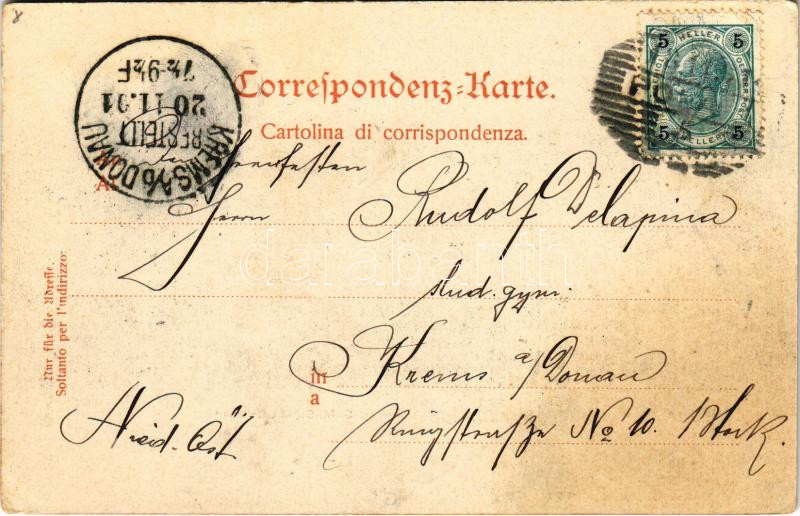 8
Correspondenz-Karte.
Cartolina di corrispondenza.
5 HELLER 5
5 HELLER 5
KREMS A/D DONAU
BESTELLT
20.11.01
7½-9½F
An
Herrn Rudolf Delapina
stud. gym.
in
a
Krems a/Donau
Ringstraße No 10. 1 Stock.
Nied. Öst.
Nur für die Adresse.
Soltanto per l'indirizzo:
darabanth